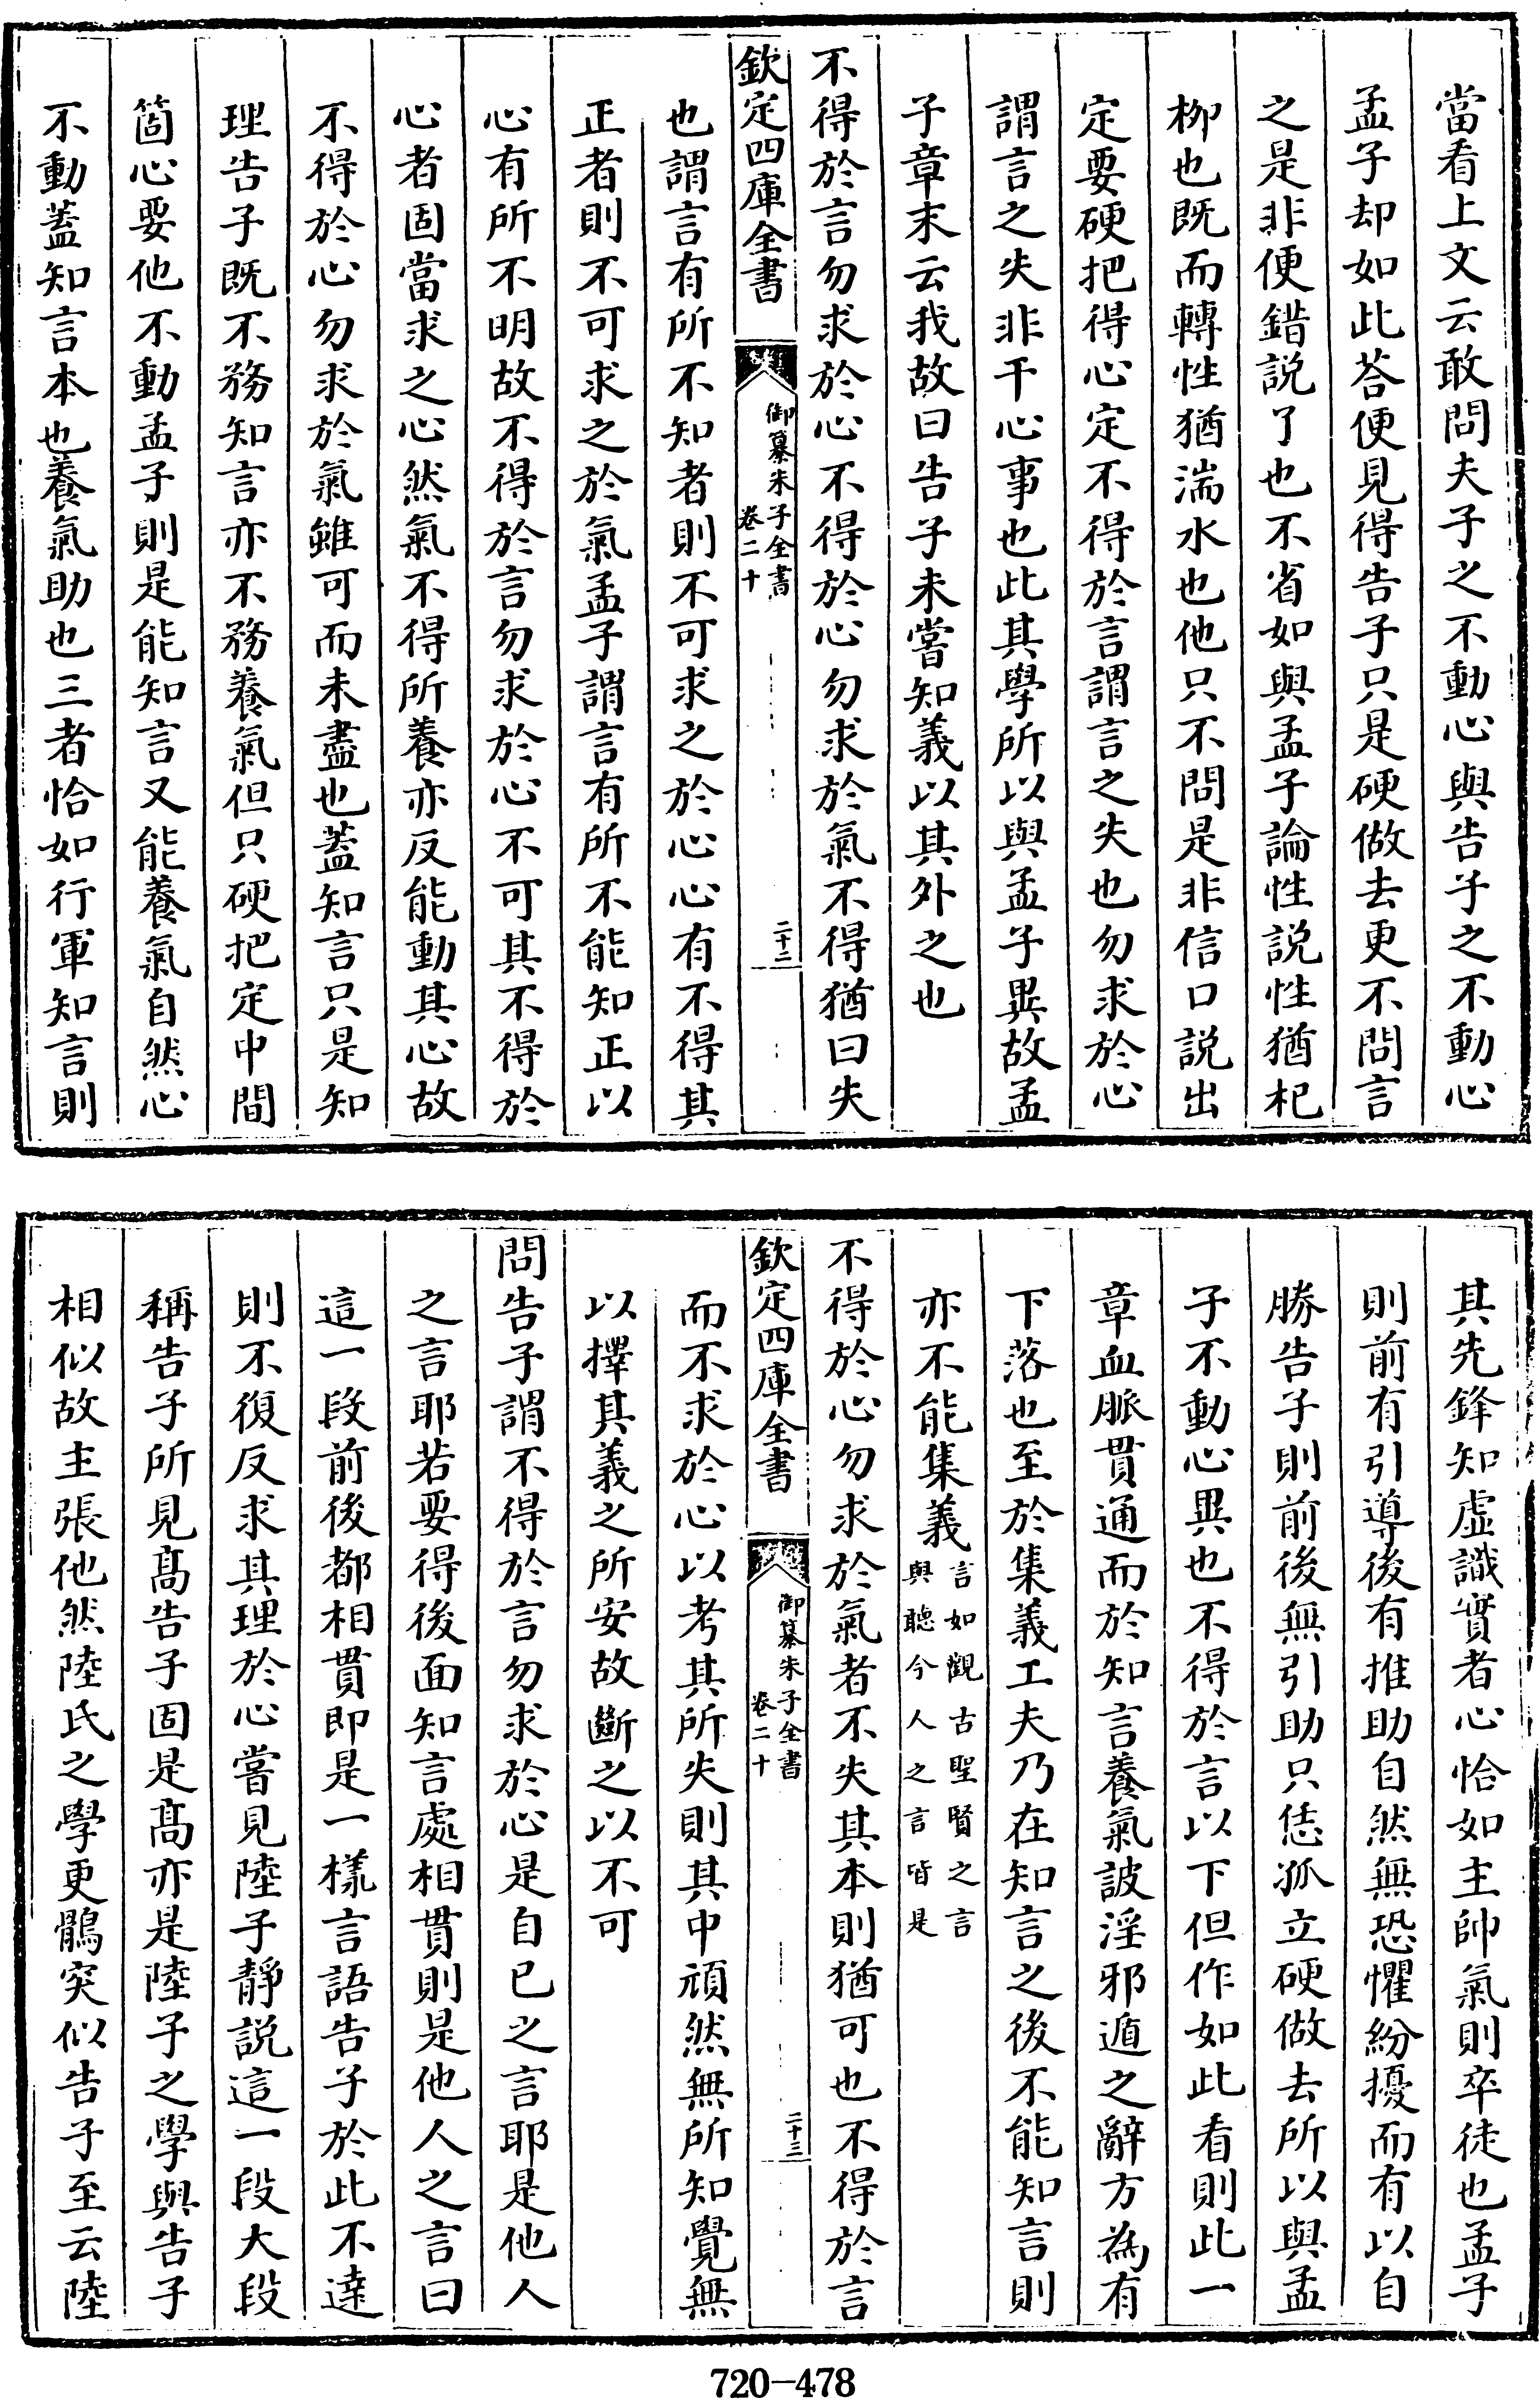 當看上文云敢問夫子之不動心與告子之不動心
孟子却如此荅便見得告子只是硬做去更不問言
之是非便錯説了也不省如與孟子論性説性猶杞
栁也既而轉性猶湍水也他只不問是非信口説出
定要硬把得心定不得於言謂言之失也勿求於心
謂言之失非干心事也此其學所以與孟子異故孟
子章末云我故曰告子未嘗知義以其外之也
不得於言勿求於心不得於心勿求於氣不得猶曰失
欽定四庫全書
御纂朱子全書
卷二十
二十二
也謂言有所不知者則不可求之於心心有不得其
正者則不可求之於氣孟子謂言有所不能知正以
心有所不明故不得於言勿求於心不可其不得於
心者固當求之心然氣不得所養亦反能動其心故
不得於心勿求於氣雖可而未盡也蓋知言只是知
理告子既不務知言亦不務養氣但只硬把定中間
箇心要他不動孟子則是能知言又能養氣自然心
不動蓋知言本也養氣助也三者恰如行軍知言則
其先鋒知虛識實者心恰如主帥氣則卒徒也孟子
則前有引導後有推助自然無恐懼紛擾而有以自
勝告子則前後無引助只恁孤立硬做去所以與孟
子不動心異也不得於言以下但作如此看則此一
章血脈貫通而於知言養氣詖淫邪遁之辭方為有
下落也至於集義工夫乃在知言之後不能知言則
亦不能集義言如觀古聖賢之言
與聽今人之言皆是
不得於心勿求於氣者不失其本則猶可也不得於言
欽定四庫全書
御纂朱子全書
卷二十
二十三
而不求於心以考其所失則其中頑然無所知覺無
以擇其義之所安故斷之以不可
問告子謂不得於言勿求於心是自已之言耶是他人
之言耶若要得後面知言處相貫則是他人之言曰
這一段前後都相貫即是一樣言語告子於此不達
則不復反求其理於心嘗見陸子靜説這一段大段
稱告子所見髙告子固是髙亦是陸子之學與告子
相似故主張他然陸氏之學更鶻突似告子至云陸
720-478